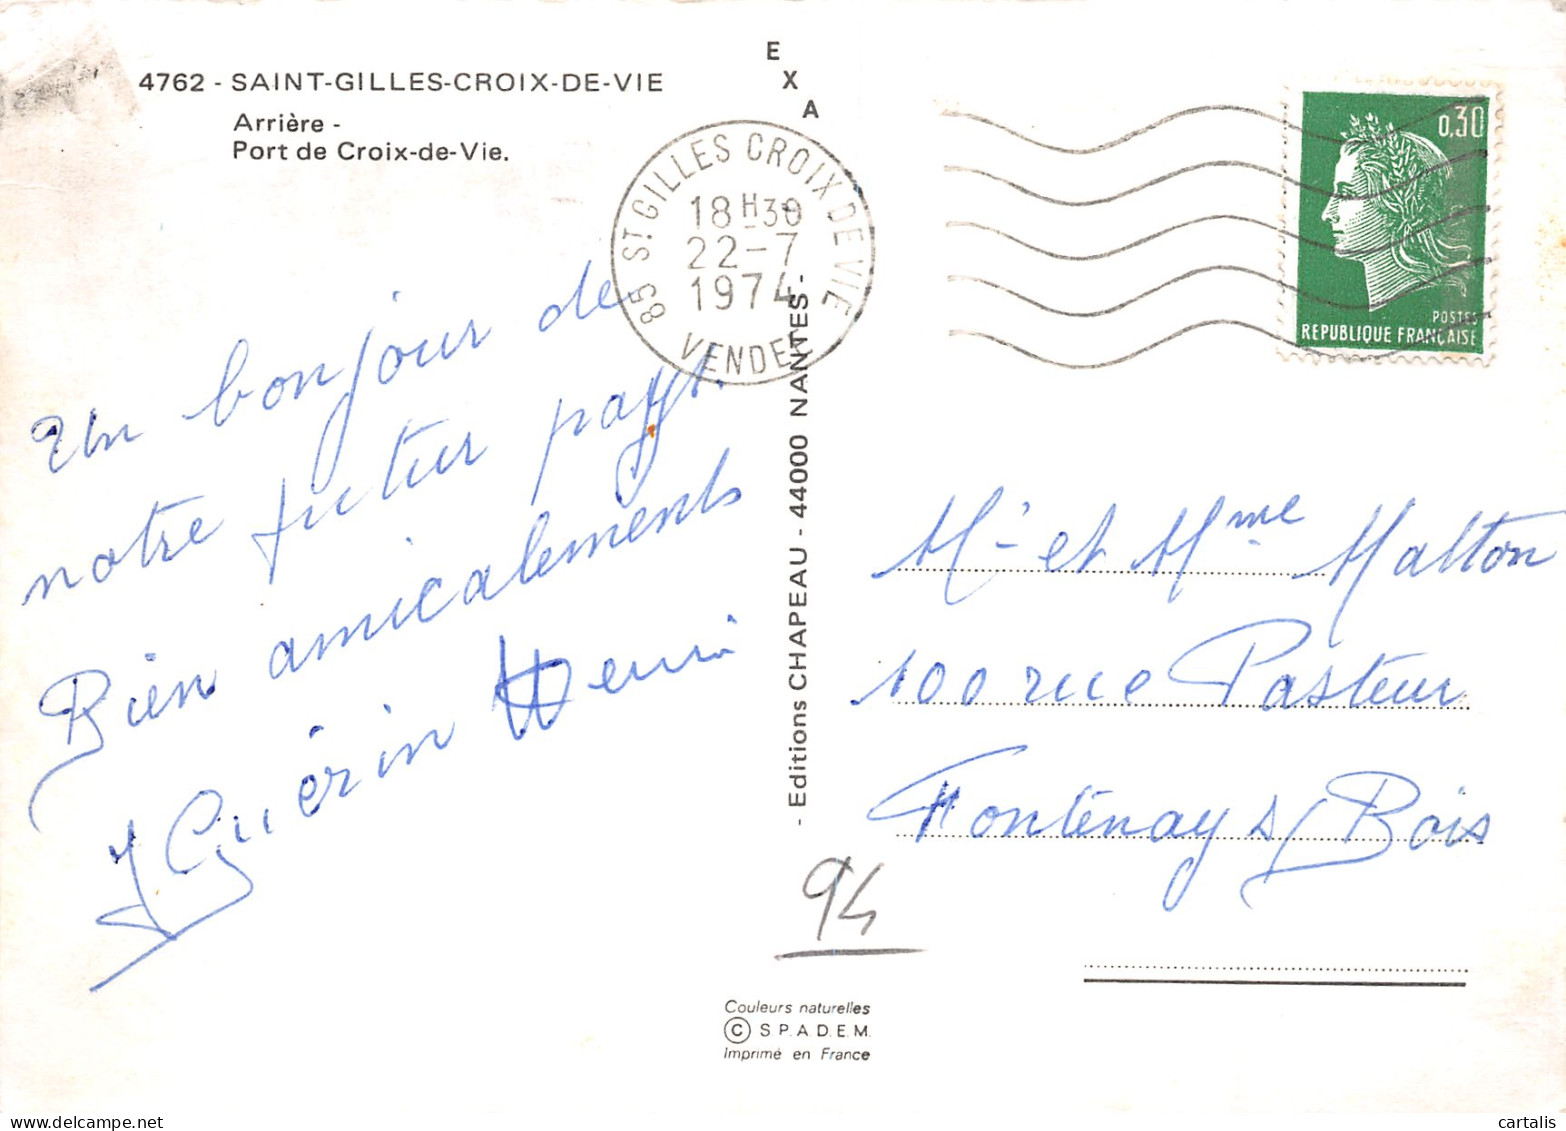 4762 - SAINT-GILLES-CROIX-DE-VIE
Arrière -
Port de Croix-de-Vie.
E
X
A
85 ST GILLES CROIX DE VIE
18H30
22-7
1974
VENDEE
0,30
POSTES
REPUBLIQUE FRANÇAISE
Un bonjour de
notre futur pays.
Bien amicalements
Guérin Henri
- Editions CHAPEAU - 44000 NANTES -
Mr et Mme Malton
100 rue Pasteur
Fontenay s/Bois
94
Couleurs naturelles
© S.P.A.D.E.M.
Imprimé en France
cartalis